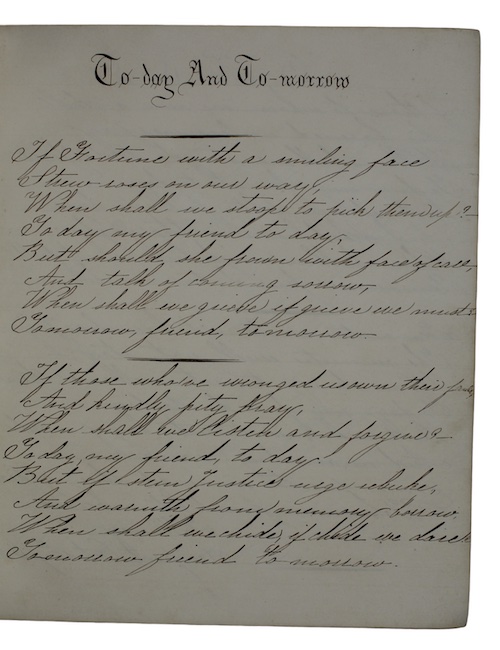 To-day And To-morrow
If Fortune with a smiling face
Strew roses on our way,
When shall we stoop to pick them up?—
To day my friend to day,
But should she frown with face of care,
And talk of coming sorrow,
When shall we grieve if grieve we must?
Tomorrow, friend, tomorrow.
If those who've wronged us own their
And kindly pity pray,
When shall we listen and forgive?—
To day, my friend, to day.
But if stern Justice urge rebuke,
And warmth from memory borrow.
When shall we chide, if chide we dare
Tomorrow friend to morrow.